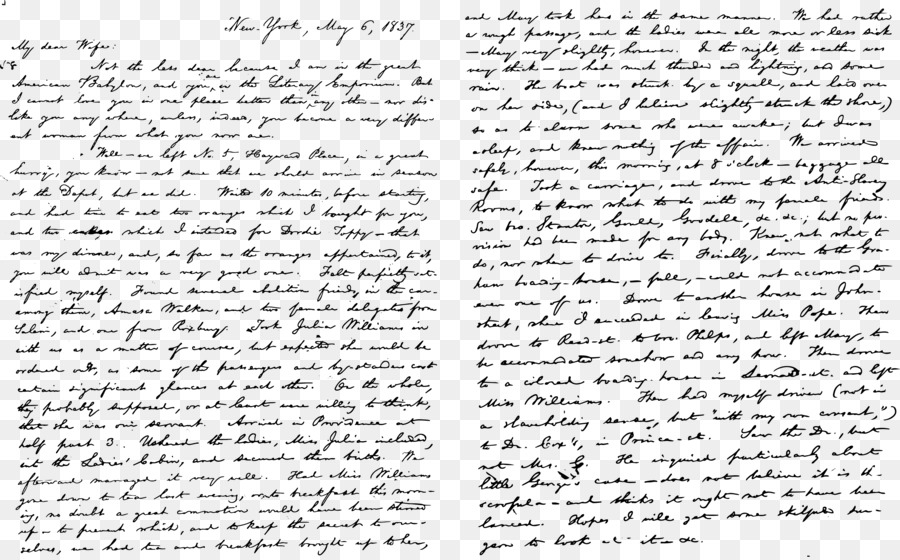 New-York, May 6, 1837.
My dear Wife:
Not the less dear, because I am in the great
American Babylon, and you are in the Literary Emporium. But
I cannot love you in one place better than any other — nor dis-
like you any where, unless, indeed, you become a very differ-
ent woman from what you now are.
Well — we left No. 5, Hayward Place, in a great
hurry, you know — not sure that we should arrive in season
at the Depot, but we did. Waited 10 minutes before starting,
and had time to eat two oranges which I bought for you,
and two cakes which I intended for Dordie Toppy — that
was my dinner, and, so far as the oranges appertained to it,
you will admit was a very good one. Felt perfectly sat-
isfied myself. Found several abolition friends in the car-
among them, Amasa Walker, and two female delegates from
Salem, and one from Roxbury. Took Julia Williams in
with us as a matter of course, but expected she would be
ordered out, as some of the passengers and by-standers cast
certain significant glances at each other. On the whole,
they probably supposed, or at least were willing to think,
that she was our servant. Arrived in Providence at
half past 3. Ushered the ladies, Miss Julia included,
into the Ladies' Cabin, and secured them births. We
afterward managed it very well. Had Miss Williams
gone down to tea last evening, or to breakfast this morn-
ing, no doubt a great commotion would have been stirred
up — to prevent which, and to keep the secret to our-
selves, we had tea and breakfast brought up to her,
and Mary took hers in the same manner. We had rather
a rough passage, and the ladies were all more or less sick
— Mary very slightly, however. In the night, the weather was
very thick — we had much thunder and lightning, and some
rain. The boat was struck by a squall, and laid over
on her side, (and I believe slightly struck the shore,)
so as to alarm some who were awake; but I was
asleep, and knew nothing of the affair. We arrived
safely, however, this morning, at 8 o'clock — baggage all
safe. Took a carriage, and drove to the Anti-Slavery
Rooms, to know what to do with my female friends.
Saw bro. Stanton, Gould, Goodell, &c. &c.; but no pro-
vision had been made for any body. Knew not what to
do, nor where to drive to. Finally, drove to the Gra-
ham boarding-house, — full, — could not accommodate
even one of us. Drove to another house in John-
street, where I succeeded in leaving Miss Pope. Then
drove to Reed-st. to bro. Phelps, and left Mary, to
be accommodated somehow and any how. Then drove
to a colored boarding-house in Leonard-st. and left
Miss Williams. Then had myself driven (not in
a slaveholding sense, but "with my own consent,")
to Dr. Cox's, in Prince-st. Saw the Dr., but
not Mrs. He inquired particularly about
little George's case — does not believe it is the
scrofula — and thinks it ought not to have been
lanced. Hopes I will get some skilful sur-
geon to look at it — &c.